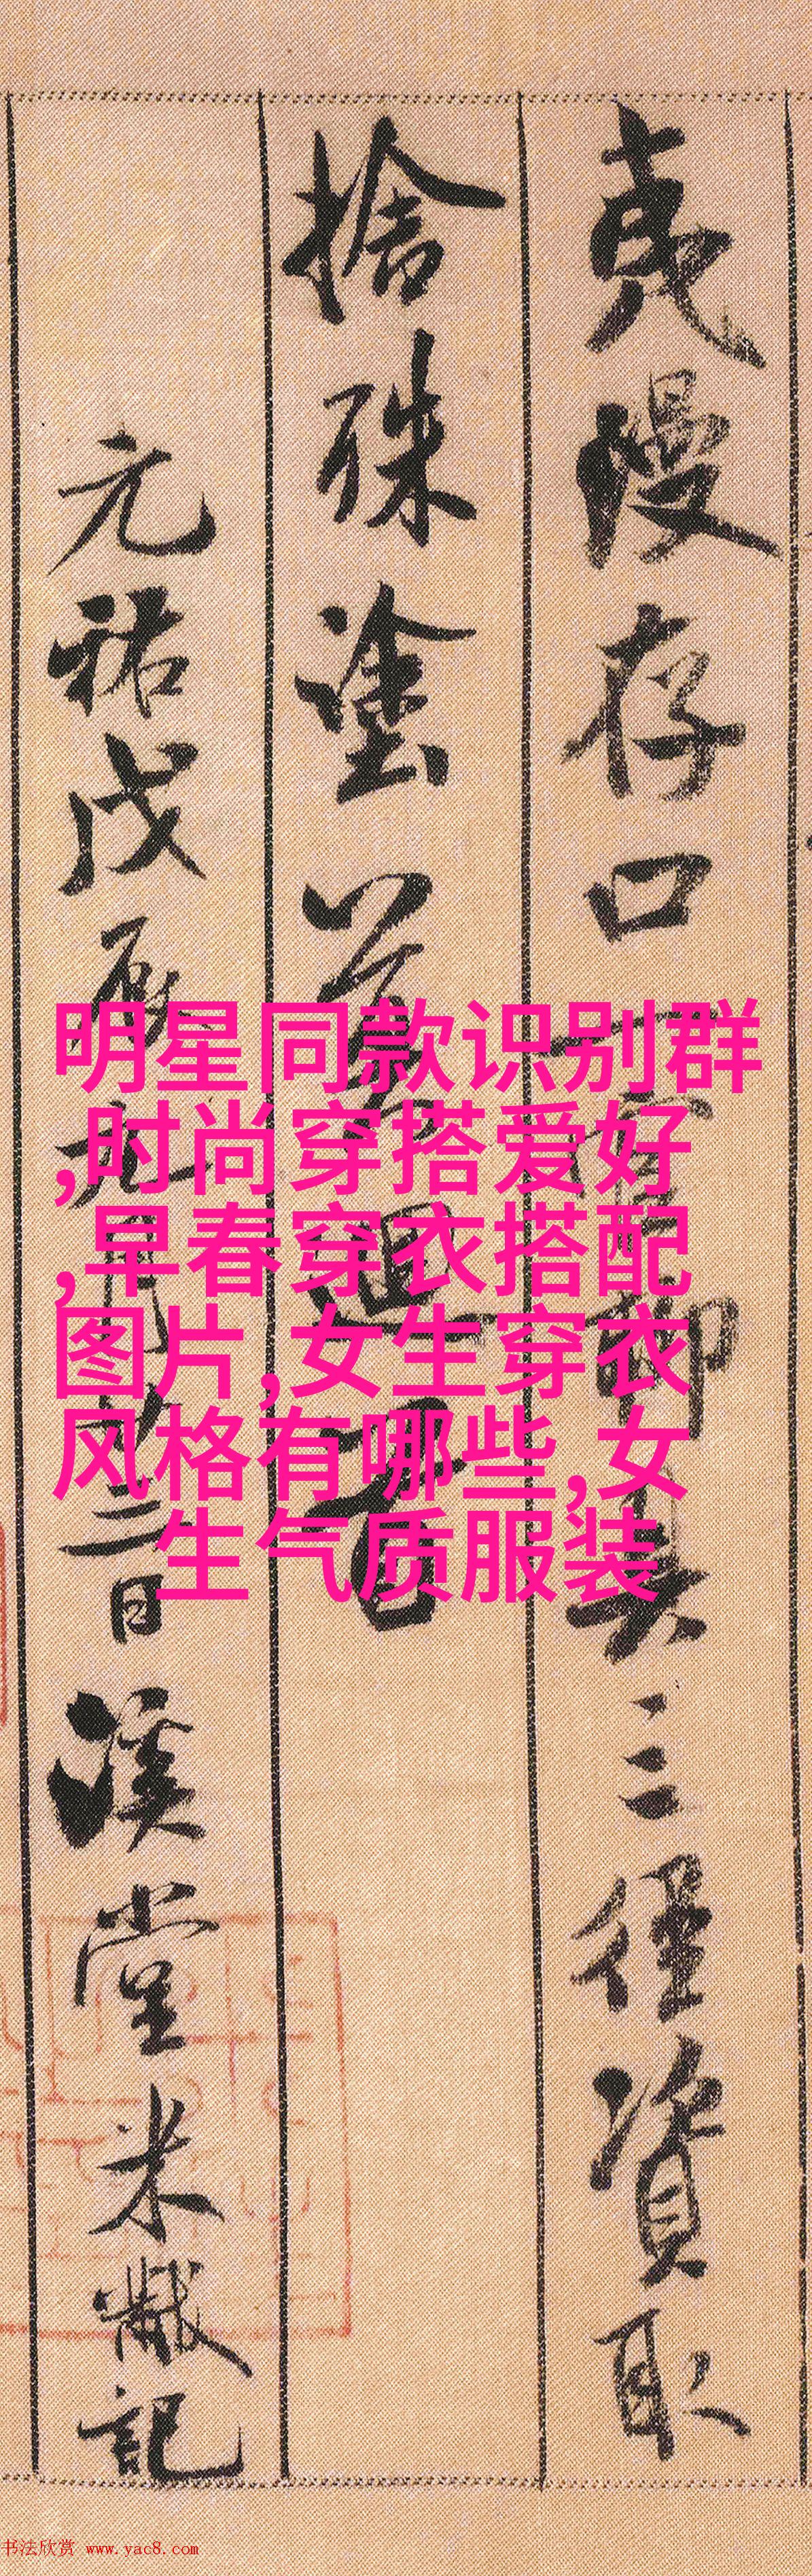 夷漫存口一官聊具三徑資取
捨殊塗莫迴首
元祐戊辰九月廿三日溪堂米黻記
明星同款识别群
,时尚穿搭爱好
,早春穿衣搭配
图片,女生穿衣
风格有哪些,女
生气质服装
书法欣赏 www.yac8.com